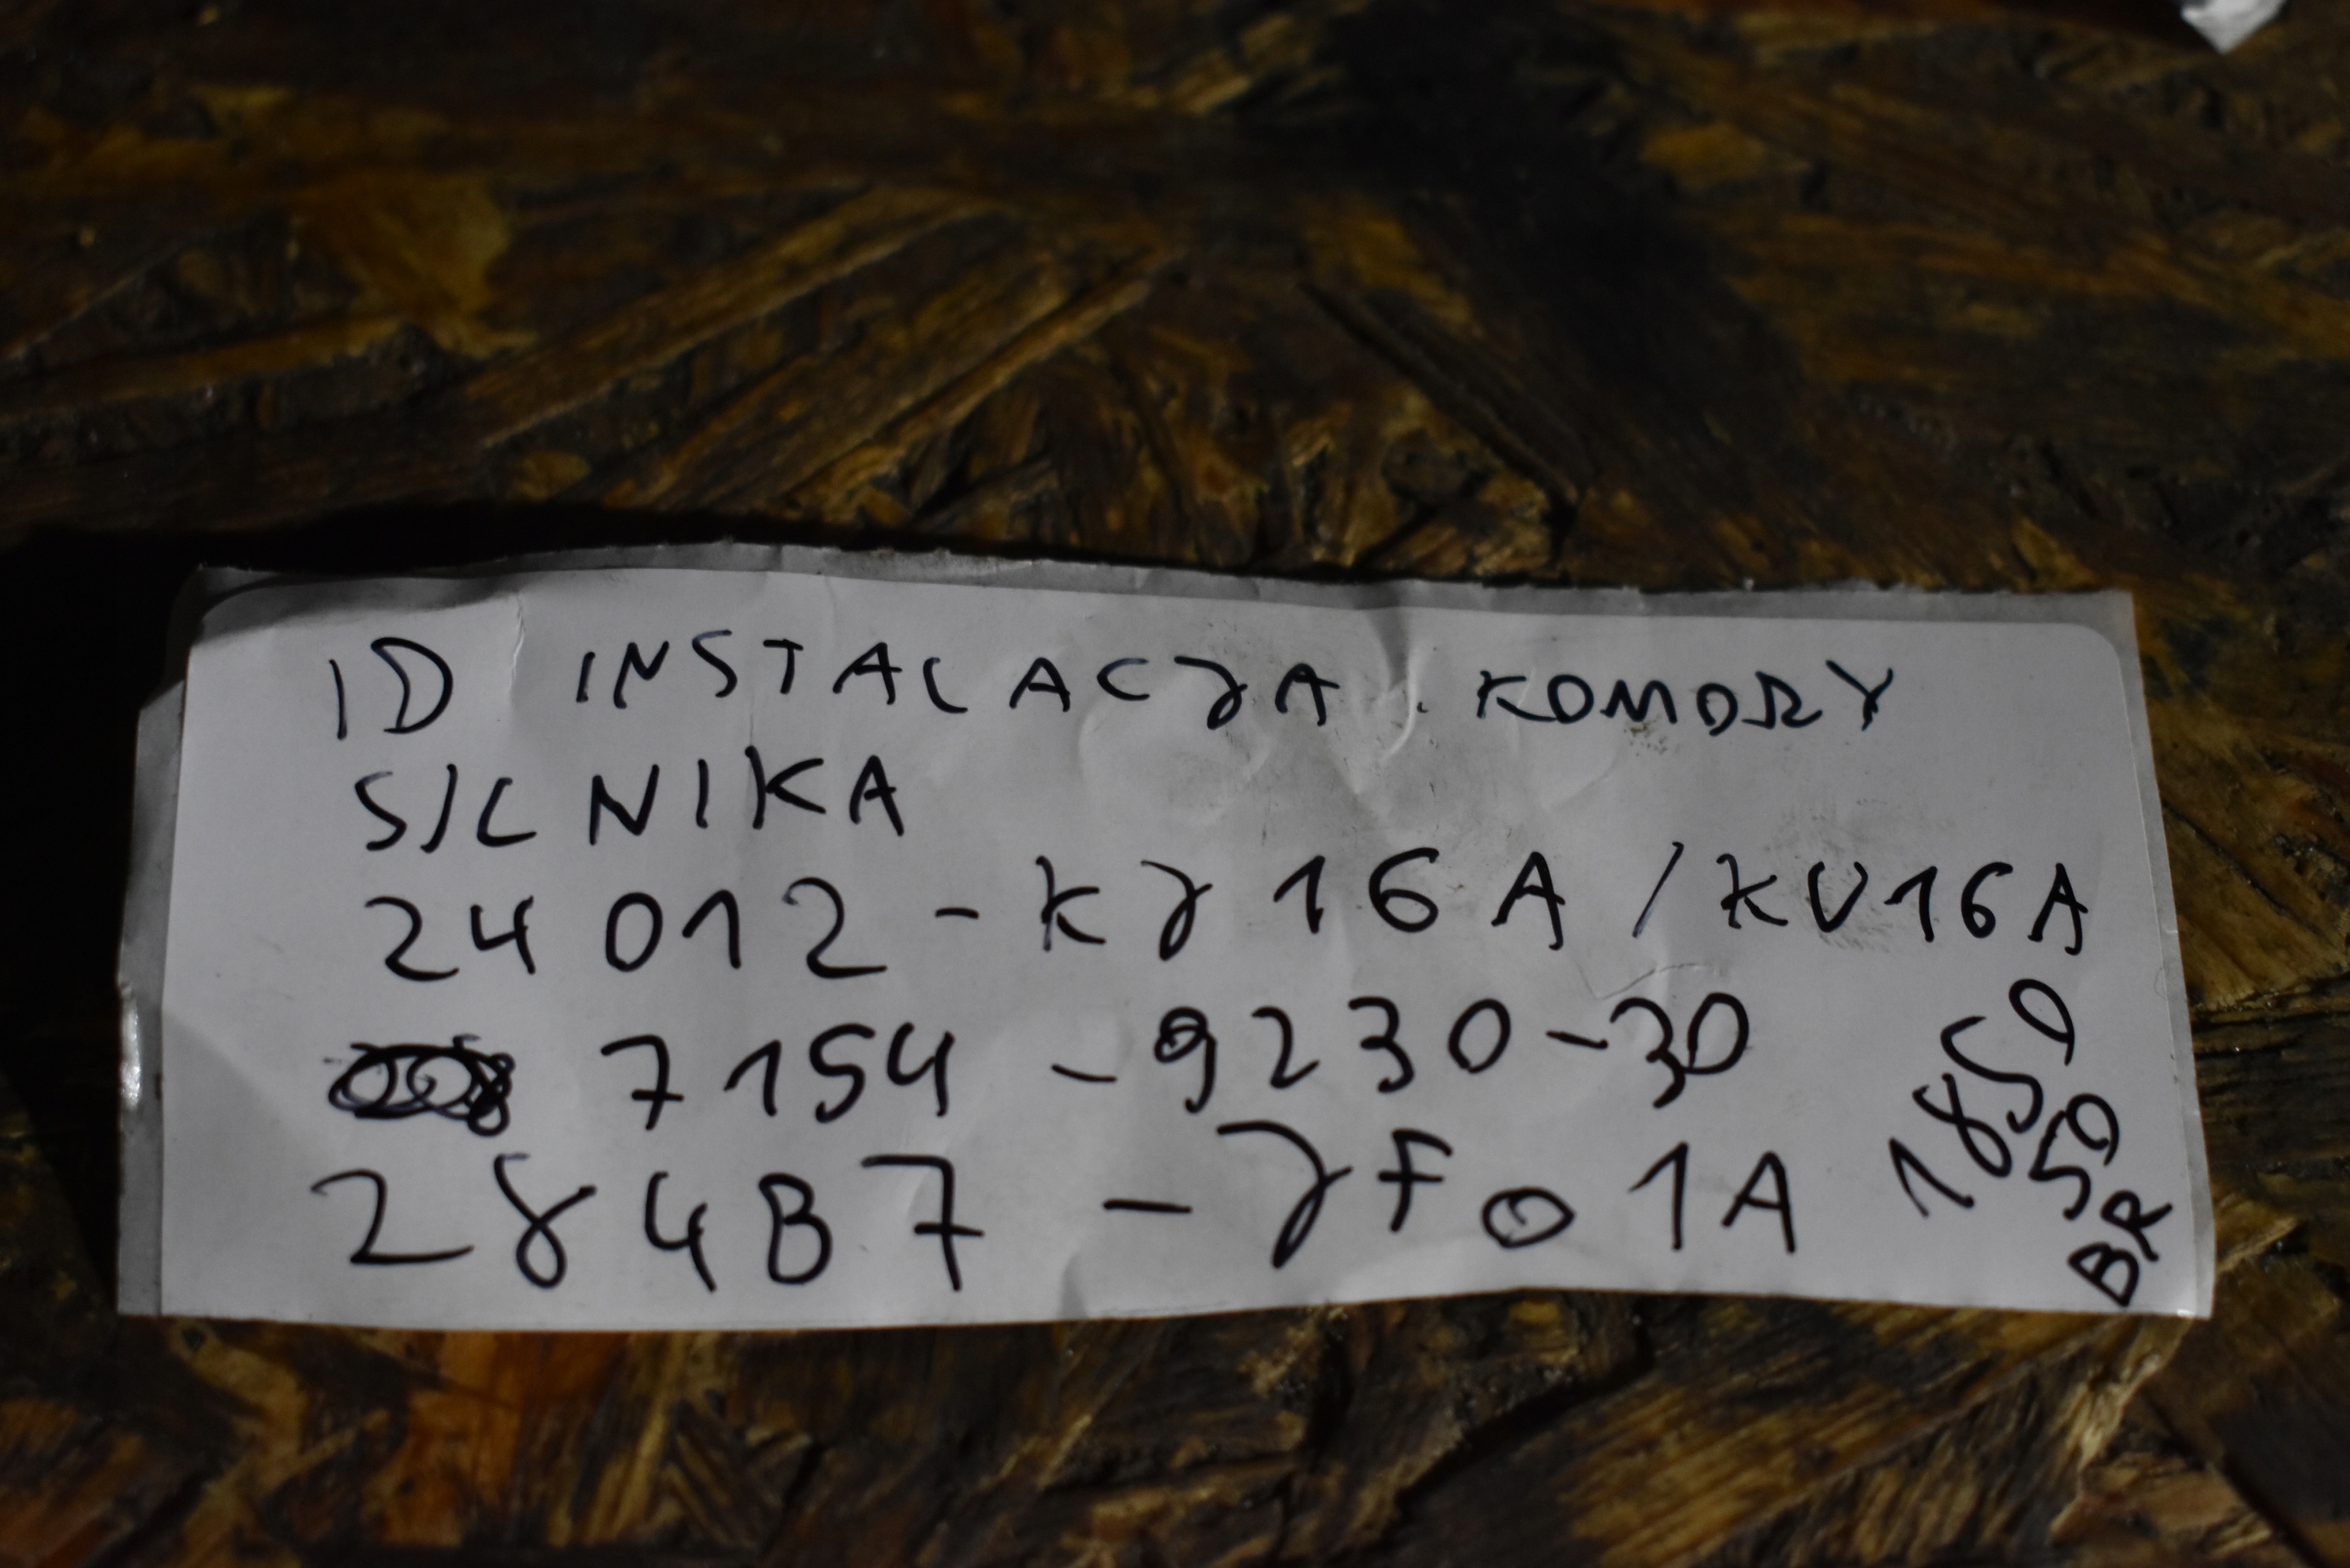 ID INSTALACJA KOMORY
SILNIKA
24012-KJ16A/KV16A
7154-9230-30
284B7-JF01A
1850
50
BR